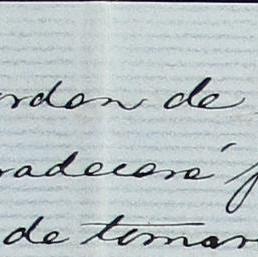 orden de
radecerá
de tomar